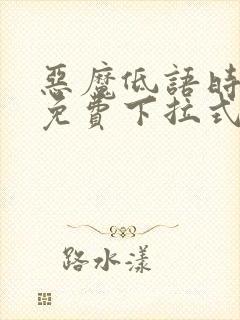 惡魔低語時
免費下拉式
路水漾